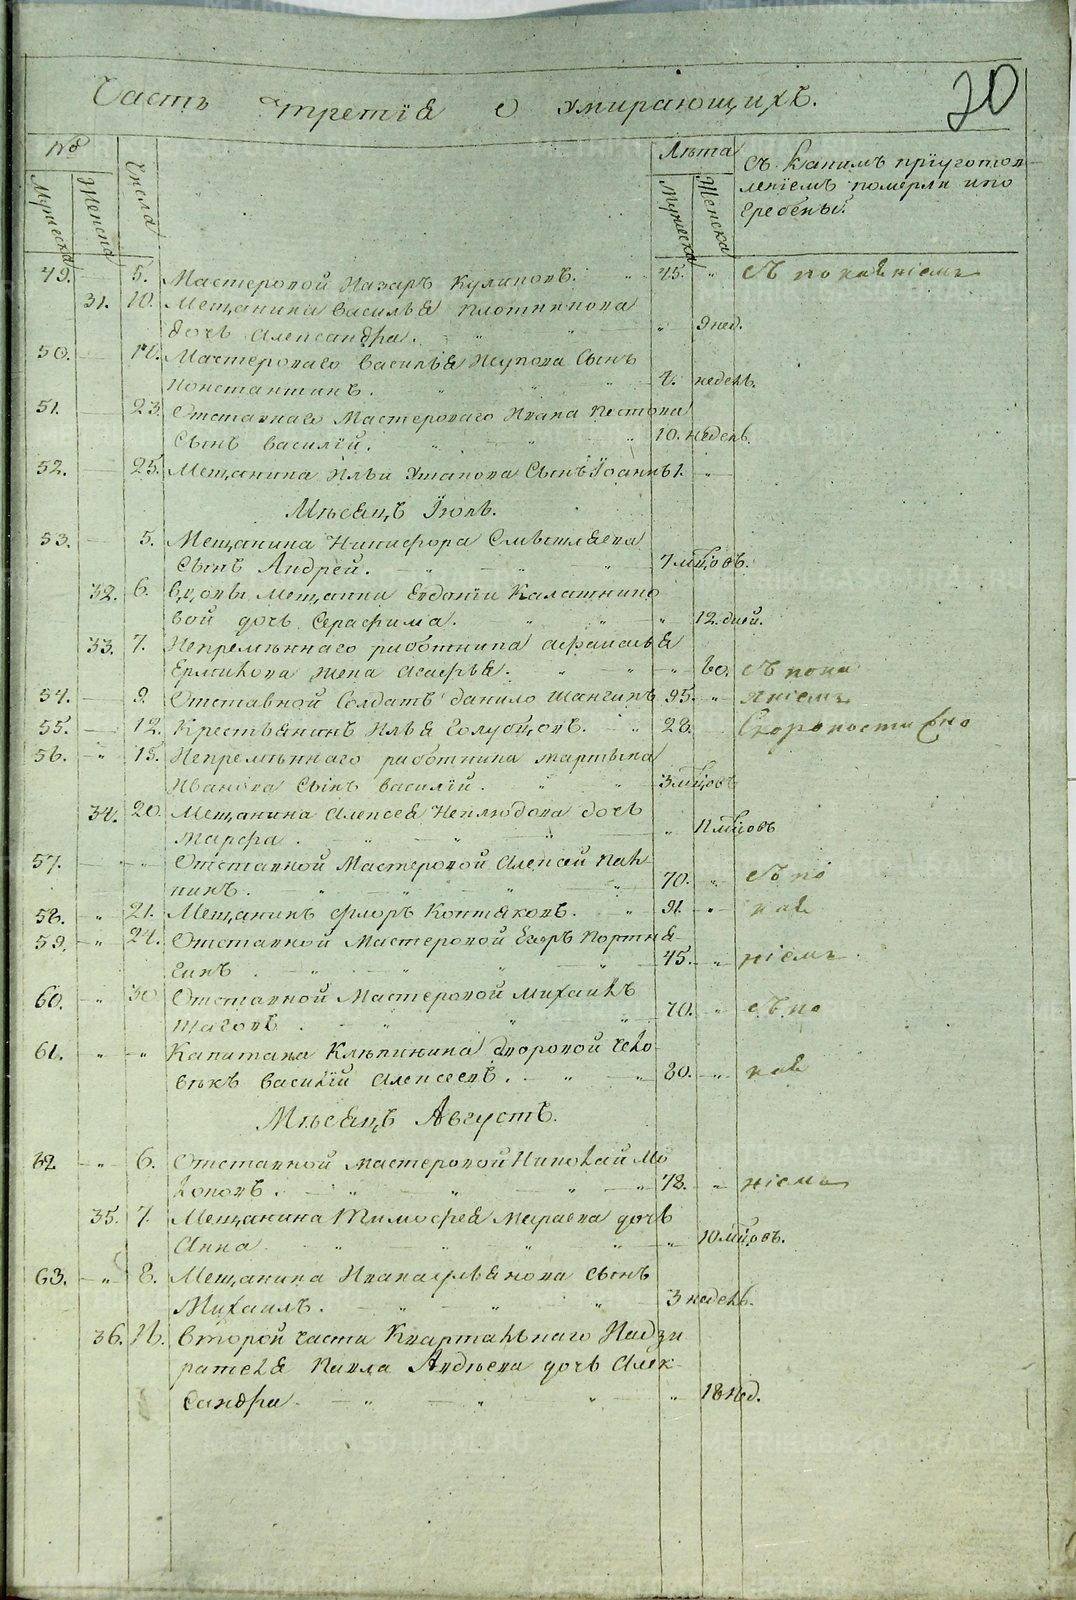 Часть третія о умирающихъ.
20
№
Мужеска
Женска
Числа
Лѣта
Мужеска
Женска
Съ какимъ пріуготов
леніемъ померли и по
гребены.
49. — 5. Мастеровой Назаръ Куликовъ. 45. „ Съ покаяніемъ
31. 10. Мещанина Василья Плотникова
дочь Александра. „ 9 нед.
50. — Мастероваго Василья Жукова Сынъ
Константинъ. 4. недель.
51. — 23. Отставнаго Мастероваго Ивана Пестова
Сынъ Василій. 10. недель.
52. — 25. Мещанина Ильи Ушакова Сынъ Іоаннъ 1. „
Мѣсяцъ Іюль.
53. — 5. Мещанина Никифора Смѣтляева
Сынъ Андрей. 7 мцовъ.
32. 6. Вдовы Мещанки Евдокіи Калашнико
вой дочь Серафима. „ 12. дней.
33. 7. Непремѣннаго работника Афанасья
Ермикова жена Агафья. „ 60. Съ пока
54. — 9. Отставной Солдатъ Данило Шангинъ 95. „ яніемъ
55. — 12. Крестьянинъ Илья Голубцовъ. 28. Скоропостижно
56. „ 15. Непремѣннаго работника Мартына
Иванова Сынъ Василій. 3 мцовъ
34. 20. Мещанина Алексея Неплюдова дочь
Марфа. „ 11 мцовъ
57. — „ Отставной Мастеровой Алексей Пал
кинъ. 70. „ Съ по
58. „ 21. Мещанинъ Флоръ Контяковъ. 91. „ кая
59. „ 24. Отставной Мастеровой Егоръ Портня
гинъ. 45. „ ніемъ.
60. „ 30 Отставной Мастеровой Михаилъ
70. „ Съ по
61. „ „ Капитана Клѣпинина дворовой чело
вѣкъ Василій Алексеевъ. 80. „ кая
Мѣсяцъ Августъ.
62 „ 6. Отставной мастеровой Николай Мо
локовъ. 78. „ ніемъ
35. 7. Мещанина Тимофея Мараева дочь
Анна „ 10 мцовъ.
63. „ 8. Мещанина Сынъ
Михаилъ. 3 недель.
36. 16. Второй части Квартальнаго Надзи
рателя Павла Авдѣева дочь Алек
сандра „ 18 нед.
METRIKI.GASO-URAL.RU